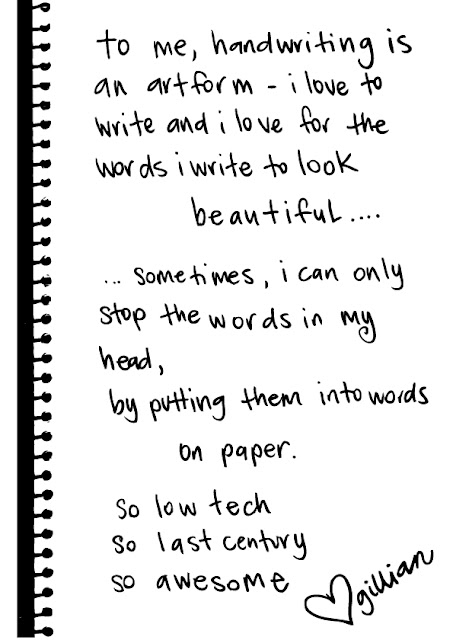 to me, handwriting is
an artform - i love to
write and i love for the
words i write to look
beautiful....
... sometimes, i can only
stop the words in my
head,
by putting them into words
on paper.
so low tech
so last century
so awesome
♡gillian